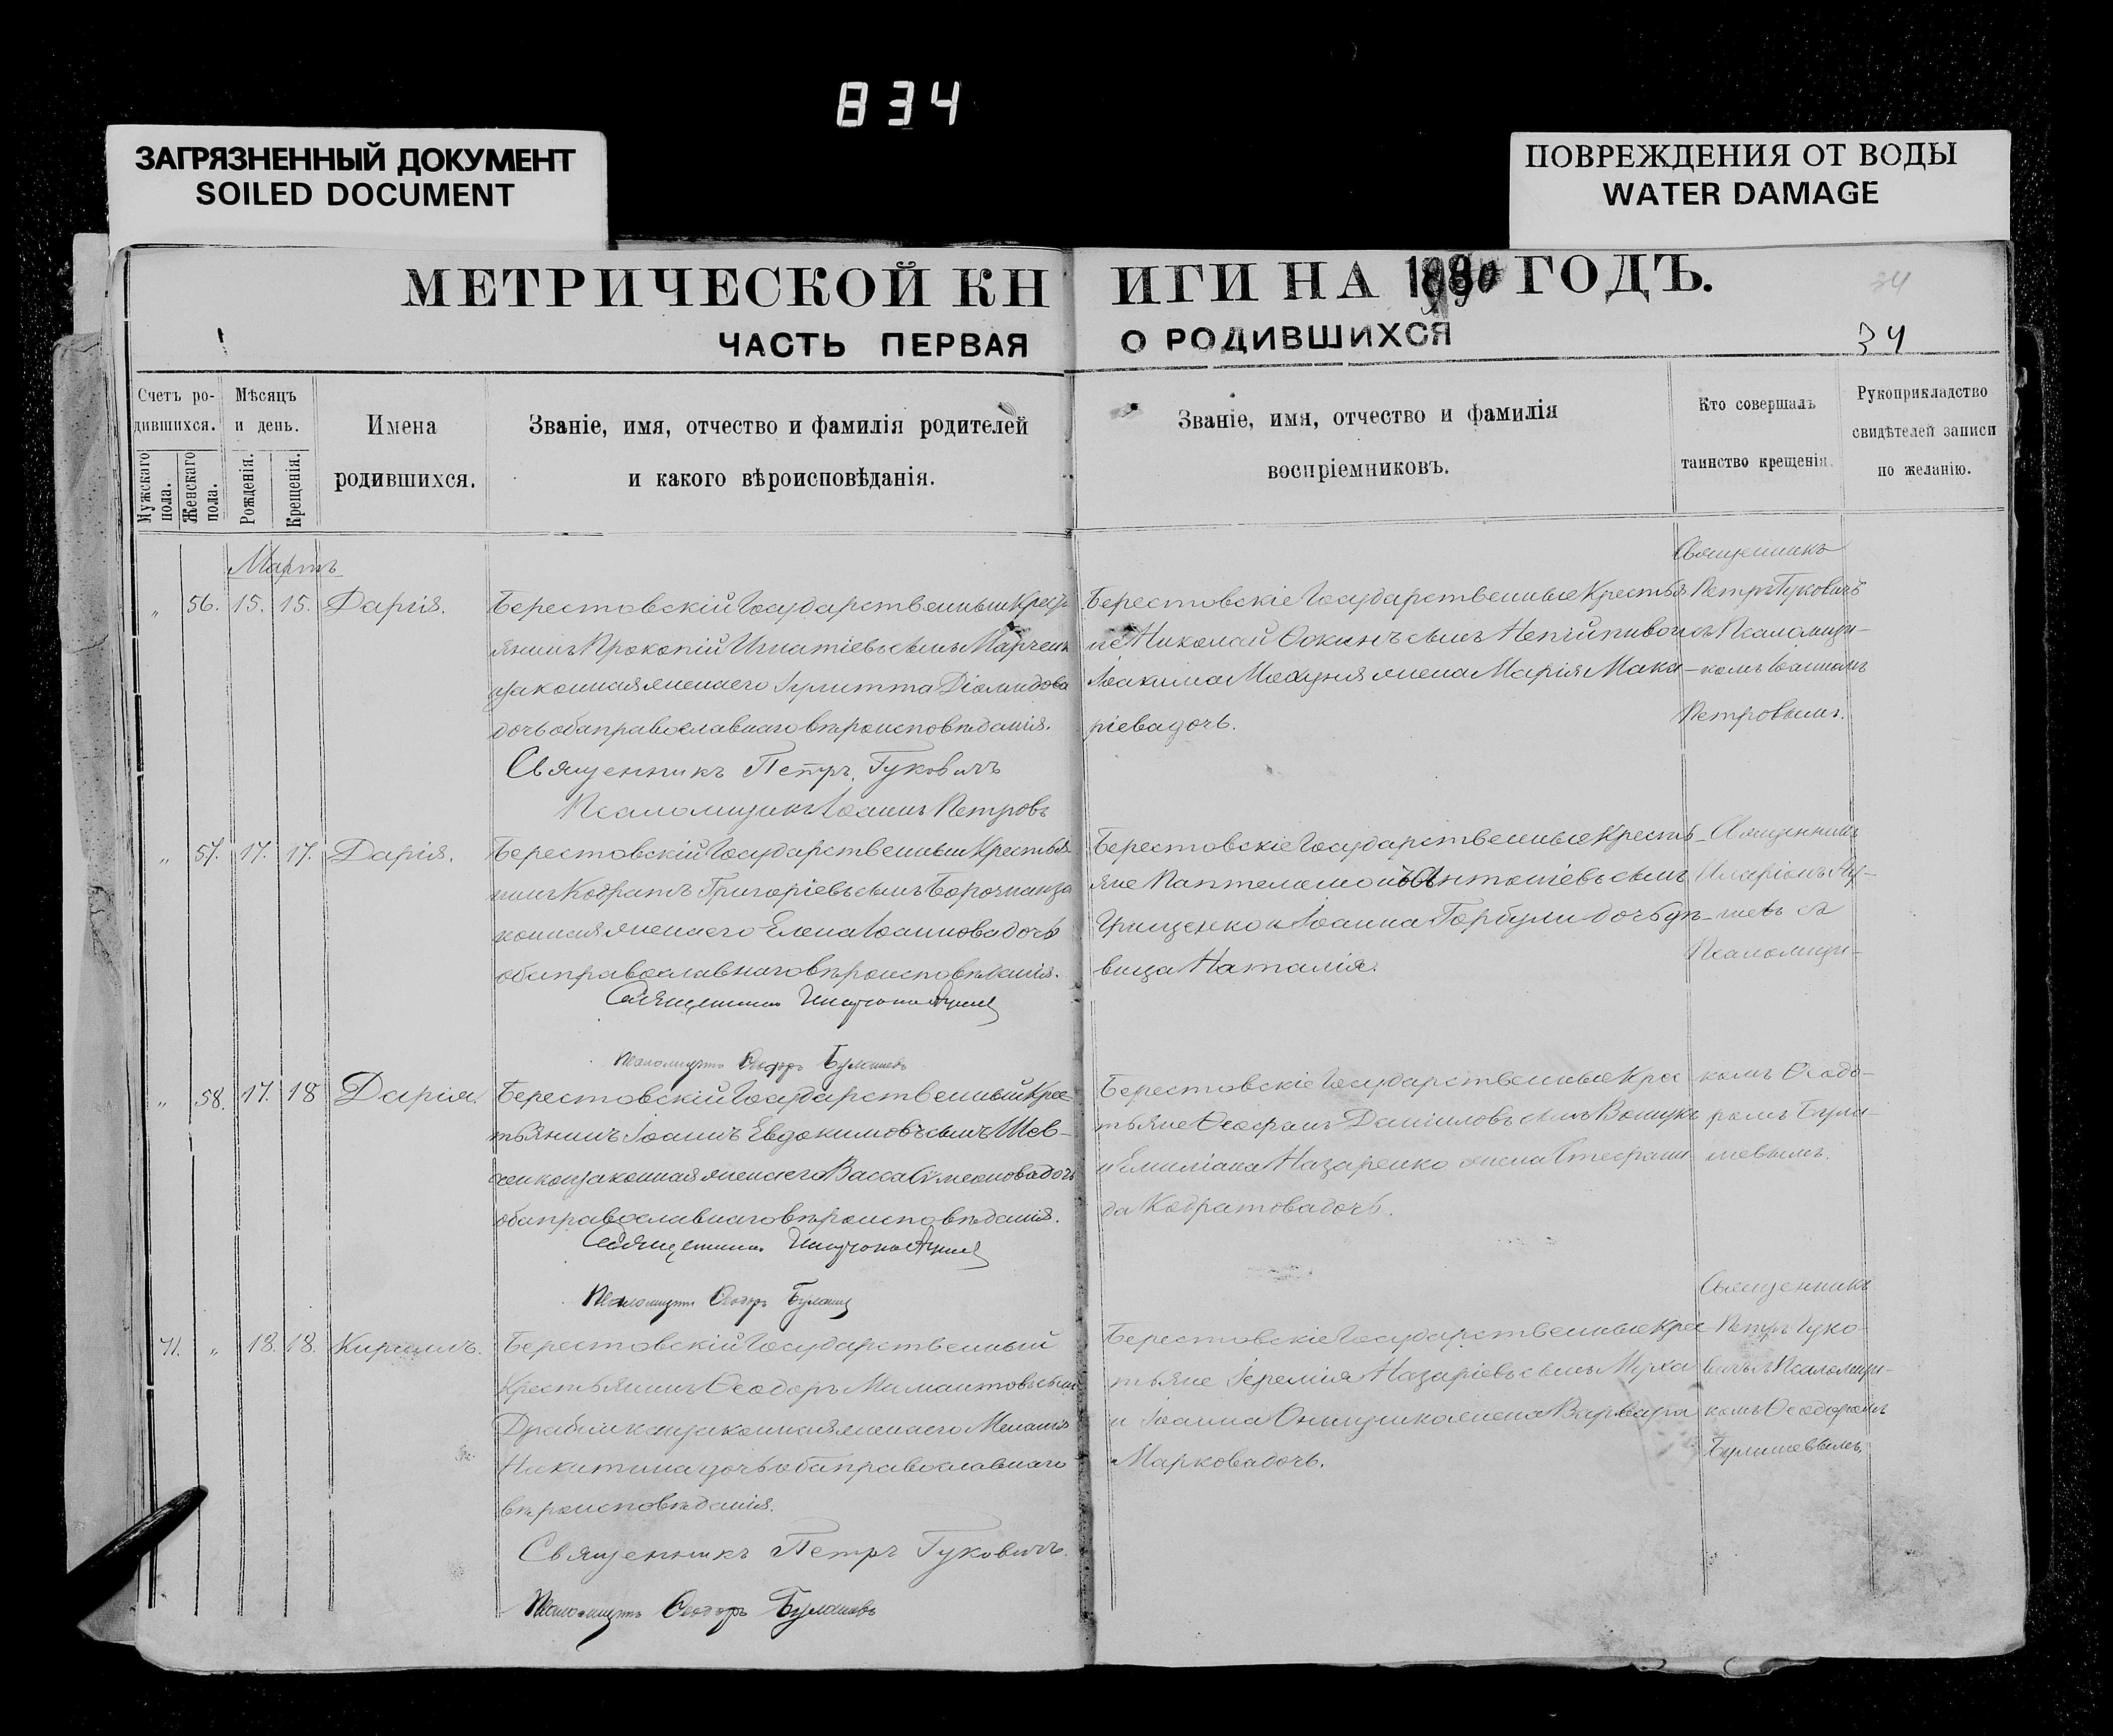 834
ЗАГРЯЗНЕННЫЙ ДОКУМЕНТ
SOILED DOCUMENT
ПОВРЕЖДЕНИЯ ОТ ВОДЫ
WATER DAMAGE
МЕТРИЧЕСКОЙ КНИГИ НА ГОДЪ.
34
ЧАСТЬ ПЕРВАЯ О РОДИВШИХСЯ
34
Счетъ ро-
дившихся.
Мужскаго пола.
Женскаго пола.
Мѣсяцъ
и день.
Рожденія.
Крещенія.
Имена
родившихся.
Званіе, имя, отчество и фамилія родителей
и какого вѣроисповѣданія.
Званіе, имя, отчество и фамилія
воспріемниковъ.
Кто совершалъ
таинство крещенія.
Рукоприкладство
свидѣтелей записи
по желанію.
Мартъ
„ 56. 15. 15. Дарія.
Берестовскій Государственный Кресть
янинъ Прокопій Игнатіевъ сынъ Марченк
законная жена его Іулитта Діомидова
дочь оба православнаго вѣроисповѣданія.
Священникъ Петръ Гуковичъ
Псаломщикъ Іоаннъ Петровъ
Берестовскіе Государственные Крестья
не Николай Фокинъ сынъ Непійпиво и
Іоакима жена Марія Мака-
ріева дочь.
Священникъ
Петръ Гуковичъ
съ Псаломщи-
комъ Іоанномъ
Петровымъ.
„ 57. 17. 17. Дарія.
Берестовскій Государственный Крестья
нинъ Кодратъ Григоріевъ сынъ за
конная жена его Елена Іоаннова дочь
оба православнаго вѣроисповѣданія.
Священникъ
Псаломщикъ Ѳеодоръ
Берестовскіе Государственные Кресть-
яне Пантелеимонъ Антоніевъ сынъ
Грищенко и Іоанна Горбули дочь дѣ-
вица Наталія.
Священникъ
Иларіонъ
съ
Псаломщи-
„ 58. 17. 18 Дарія.
Берестовскій Государственный Крес-
тьянинъ Іоаннъ Евдокимовъ сынъ Шев-
ченко законная жена его Васса Сѵмеонова дочь
оба православнаго вѣроисповѣданія.
Священникъ
Псаломщикъ Ѳеодоръ
Берестовскіе Государственные Крес
тьяне Ѳеофанъ Даніиловъ сынъ
и Емиліана Назаренко жена Стефани
да Кодратова дочь.
комъ Ѳеодо-
ромъ
41. „ 18. 18. Кириллъ.
Берестовскій Государственный
Крестьянинъ Ѳеодоръ Мамантовъ сынъ
законная жена его Меланія
Никитина дочь оба православнаго
вѣроисповѣданія.
Священникъ Петръ Гуковичъ.
Псаломщикъ Ѳеодоръ
Берестовскіе Государственные Крес
тьяне Іеремія Назаріевъ сынъ Муха
и Іоанна жена Варвара
Маркова дочь.
Священникъ
Петръ Гуко-
вичъ съ Псаломщи-
комъ Ѳеодоромъ